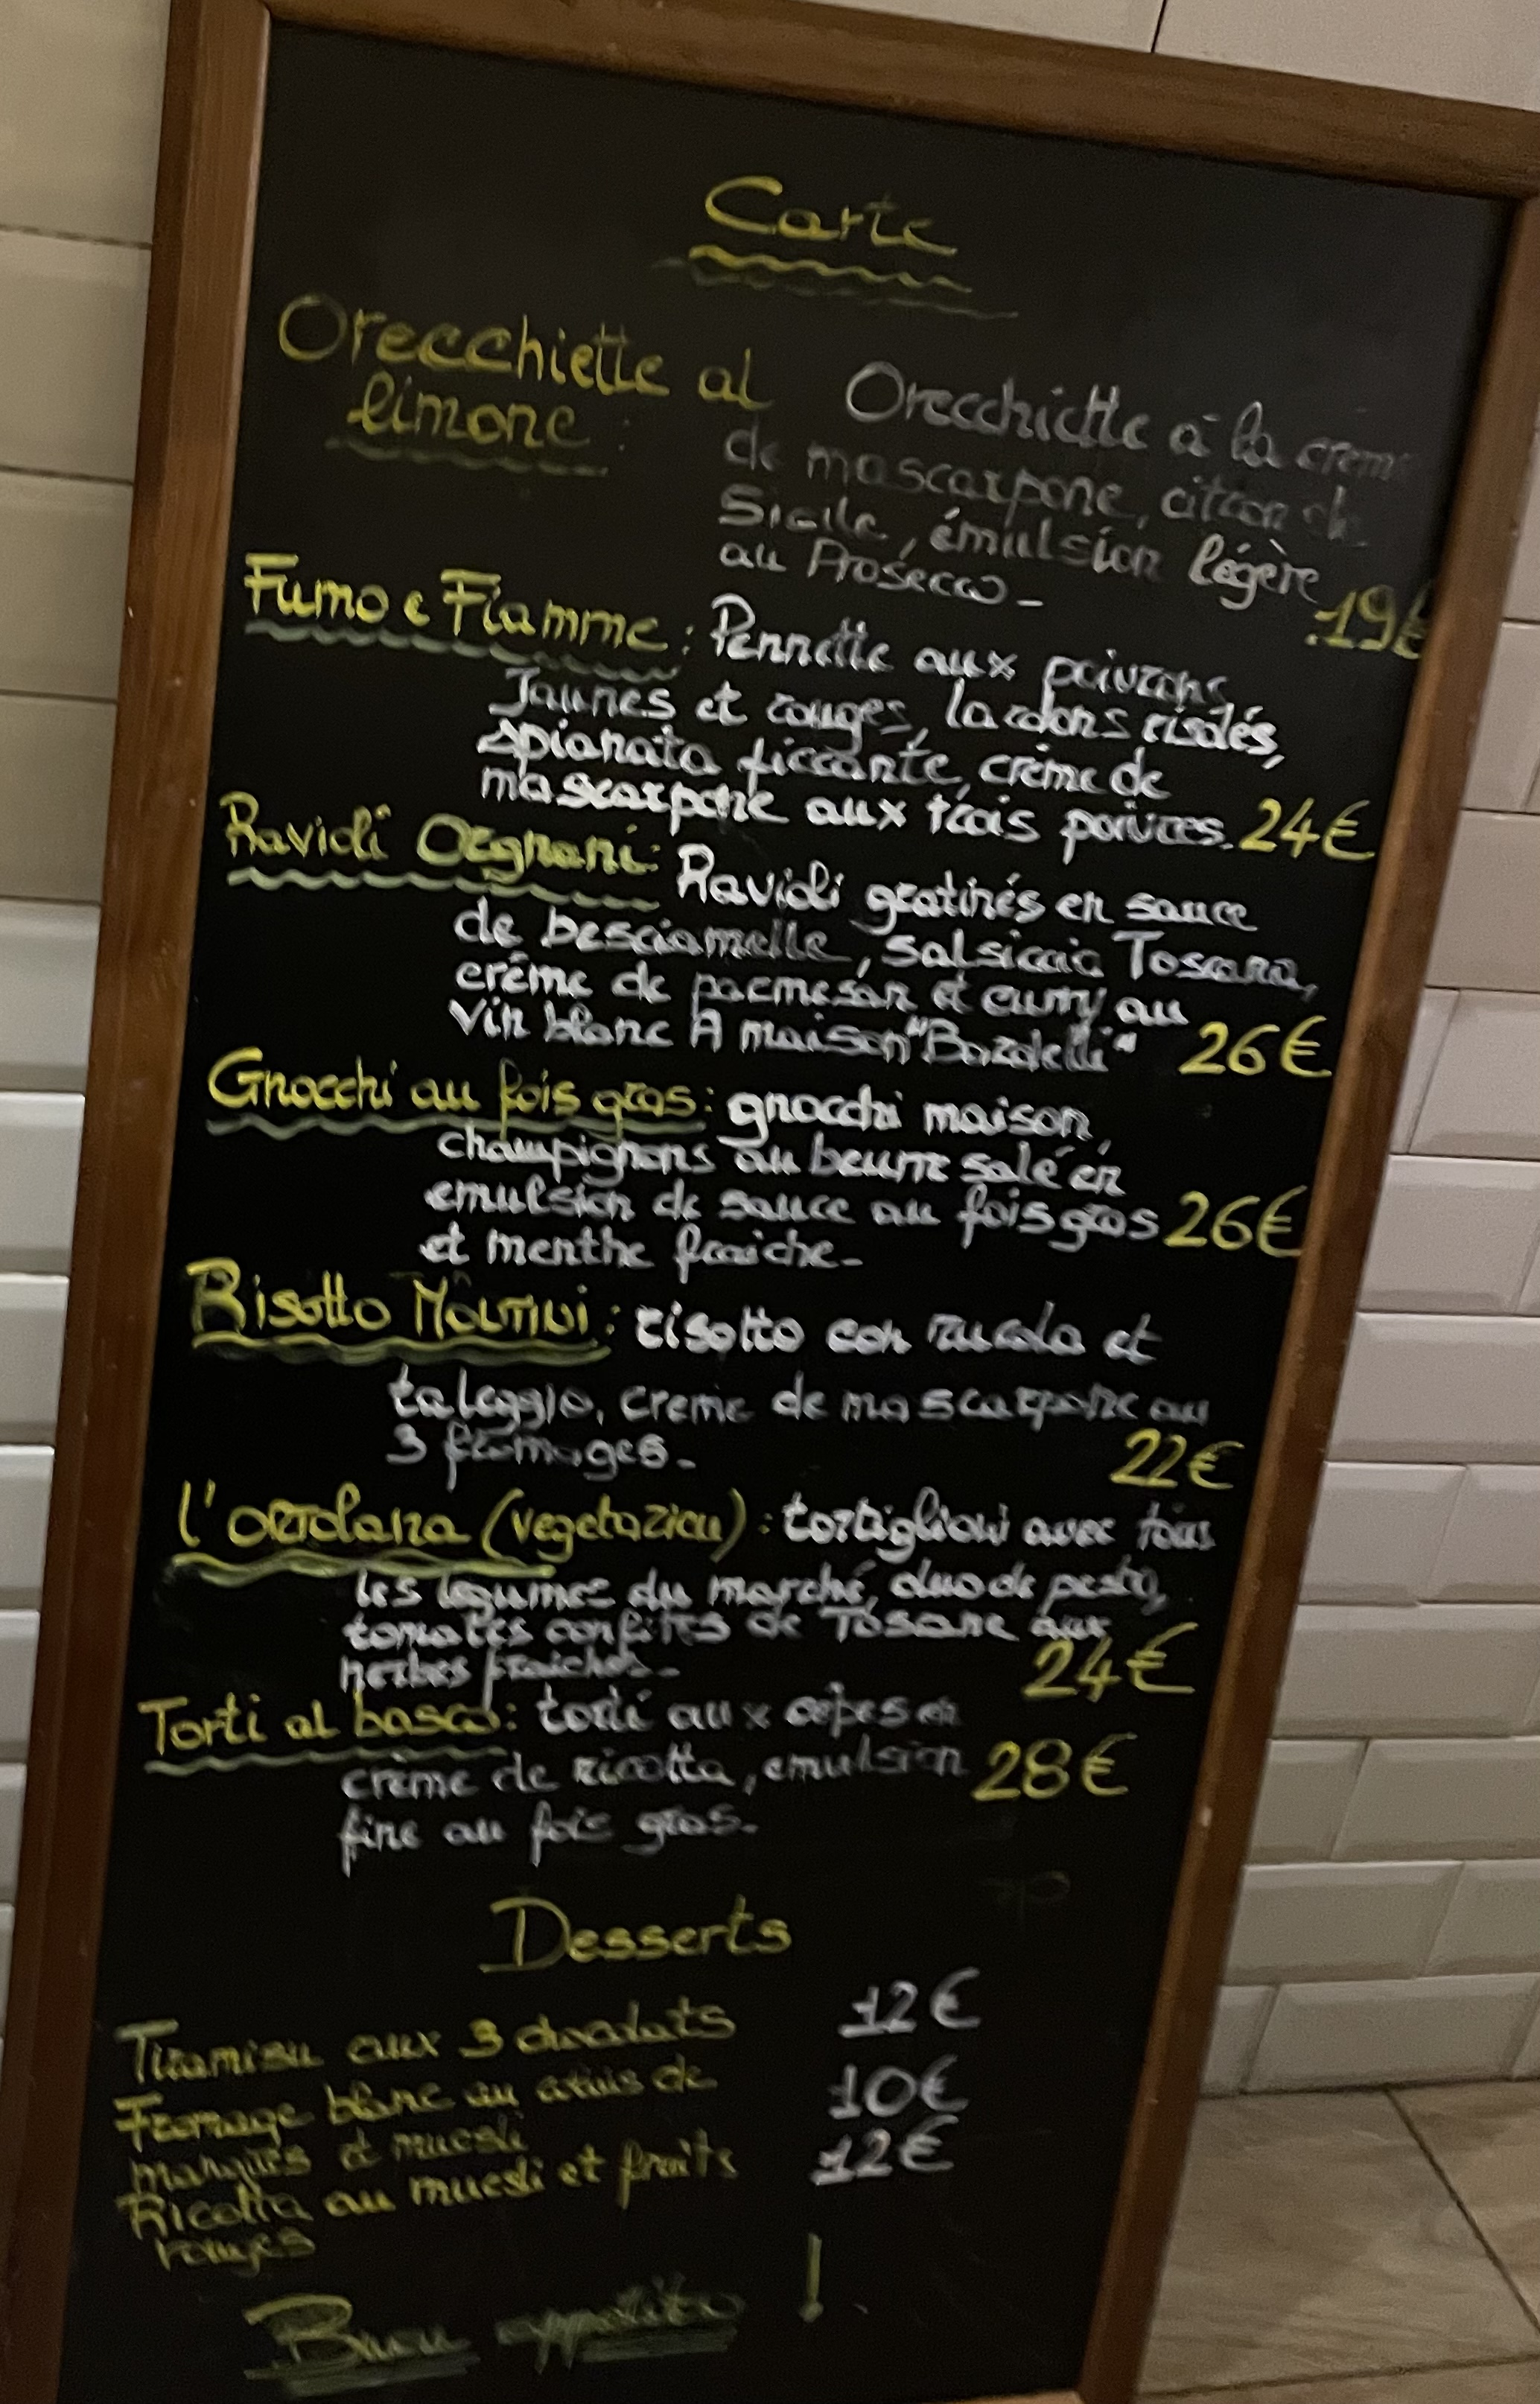 Carte
Orecchiette al
limone :
Orecchiette à la creme
de mascarpone, citron de
Sicile, émulsion légère
au Prosecco - 19€
Fumo e Fiamme : Pennette aux poivrons
Jaunes et rouges, lardons risolés,
spianata piccante, crème de
mascarpone aux trois poivres. 24€
Ravioli Orgnani : Ravioli gratinés en sauce
de besciamelle, salsiccia Toscana,
crème de parmesan et curry au
vin blanc A maison "Bardelli" 26€
Gnocchi au fois gras : gnocchi maison,
champignons au beurre salé en
emulsion de sauce au fois gras 26€
et menthe fraiche -
Risotto : risotto con rucola et
taleggio, creme de mascarpone au
3 fromages - 22€
l'ortolana (vegetaziau) : tortiglioni avec tous
les legumes du marché, duo de pesto,
tomates confites de Tosane aux
herbes fraiches - 24€
Torti al bosco : torti aux cèpes en
crème de ricotta, emulsion 28€
fine au fois gras.
Desserts
Tiramisu aux 3 chocolats 12€
Fromage blanc au de 10€
mangues et muesli
Ricotta au muesli et fruits 12€
rouges
Buon appetito !